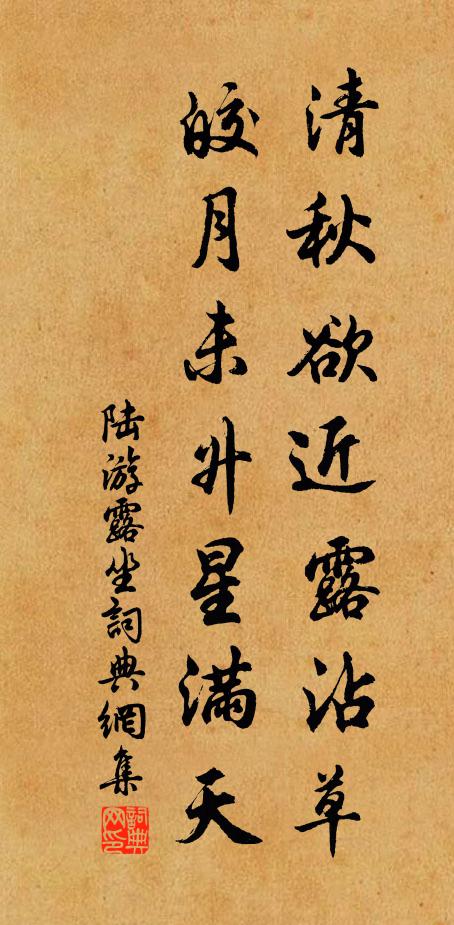 清秋欲近露沾草
皎月未升星满天
陆游露坐詞典網集
詞典网印